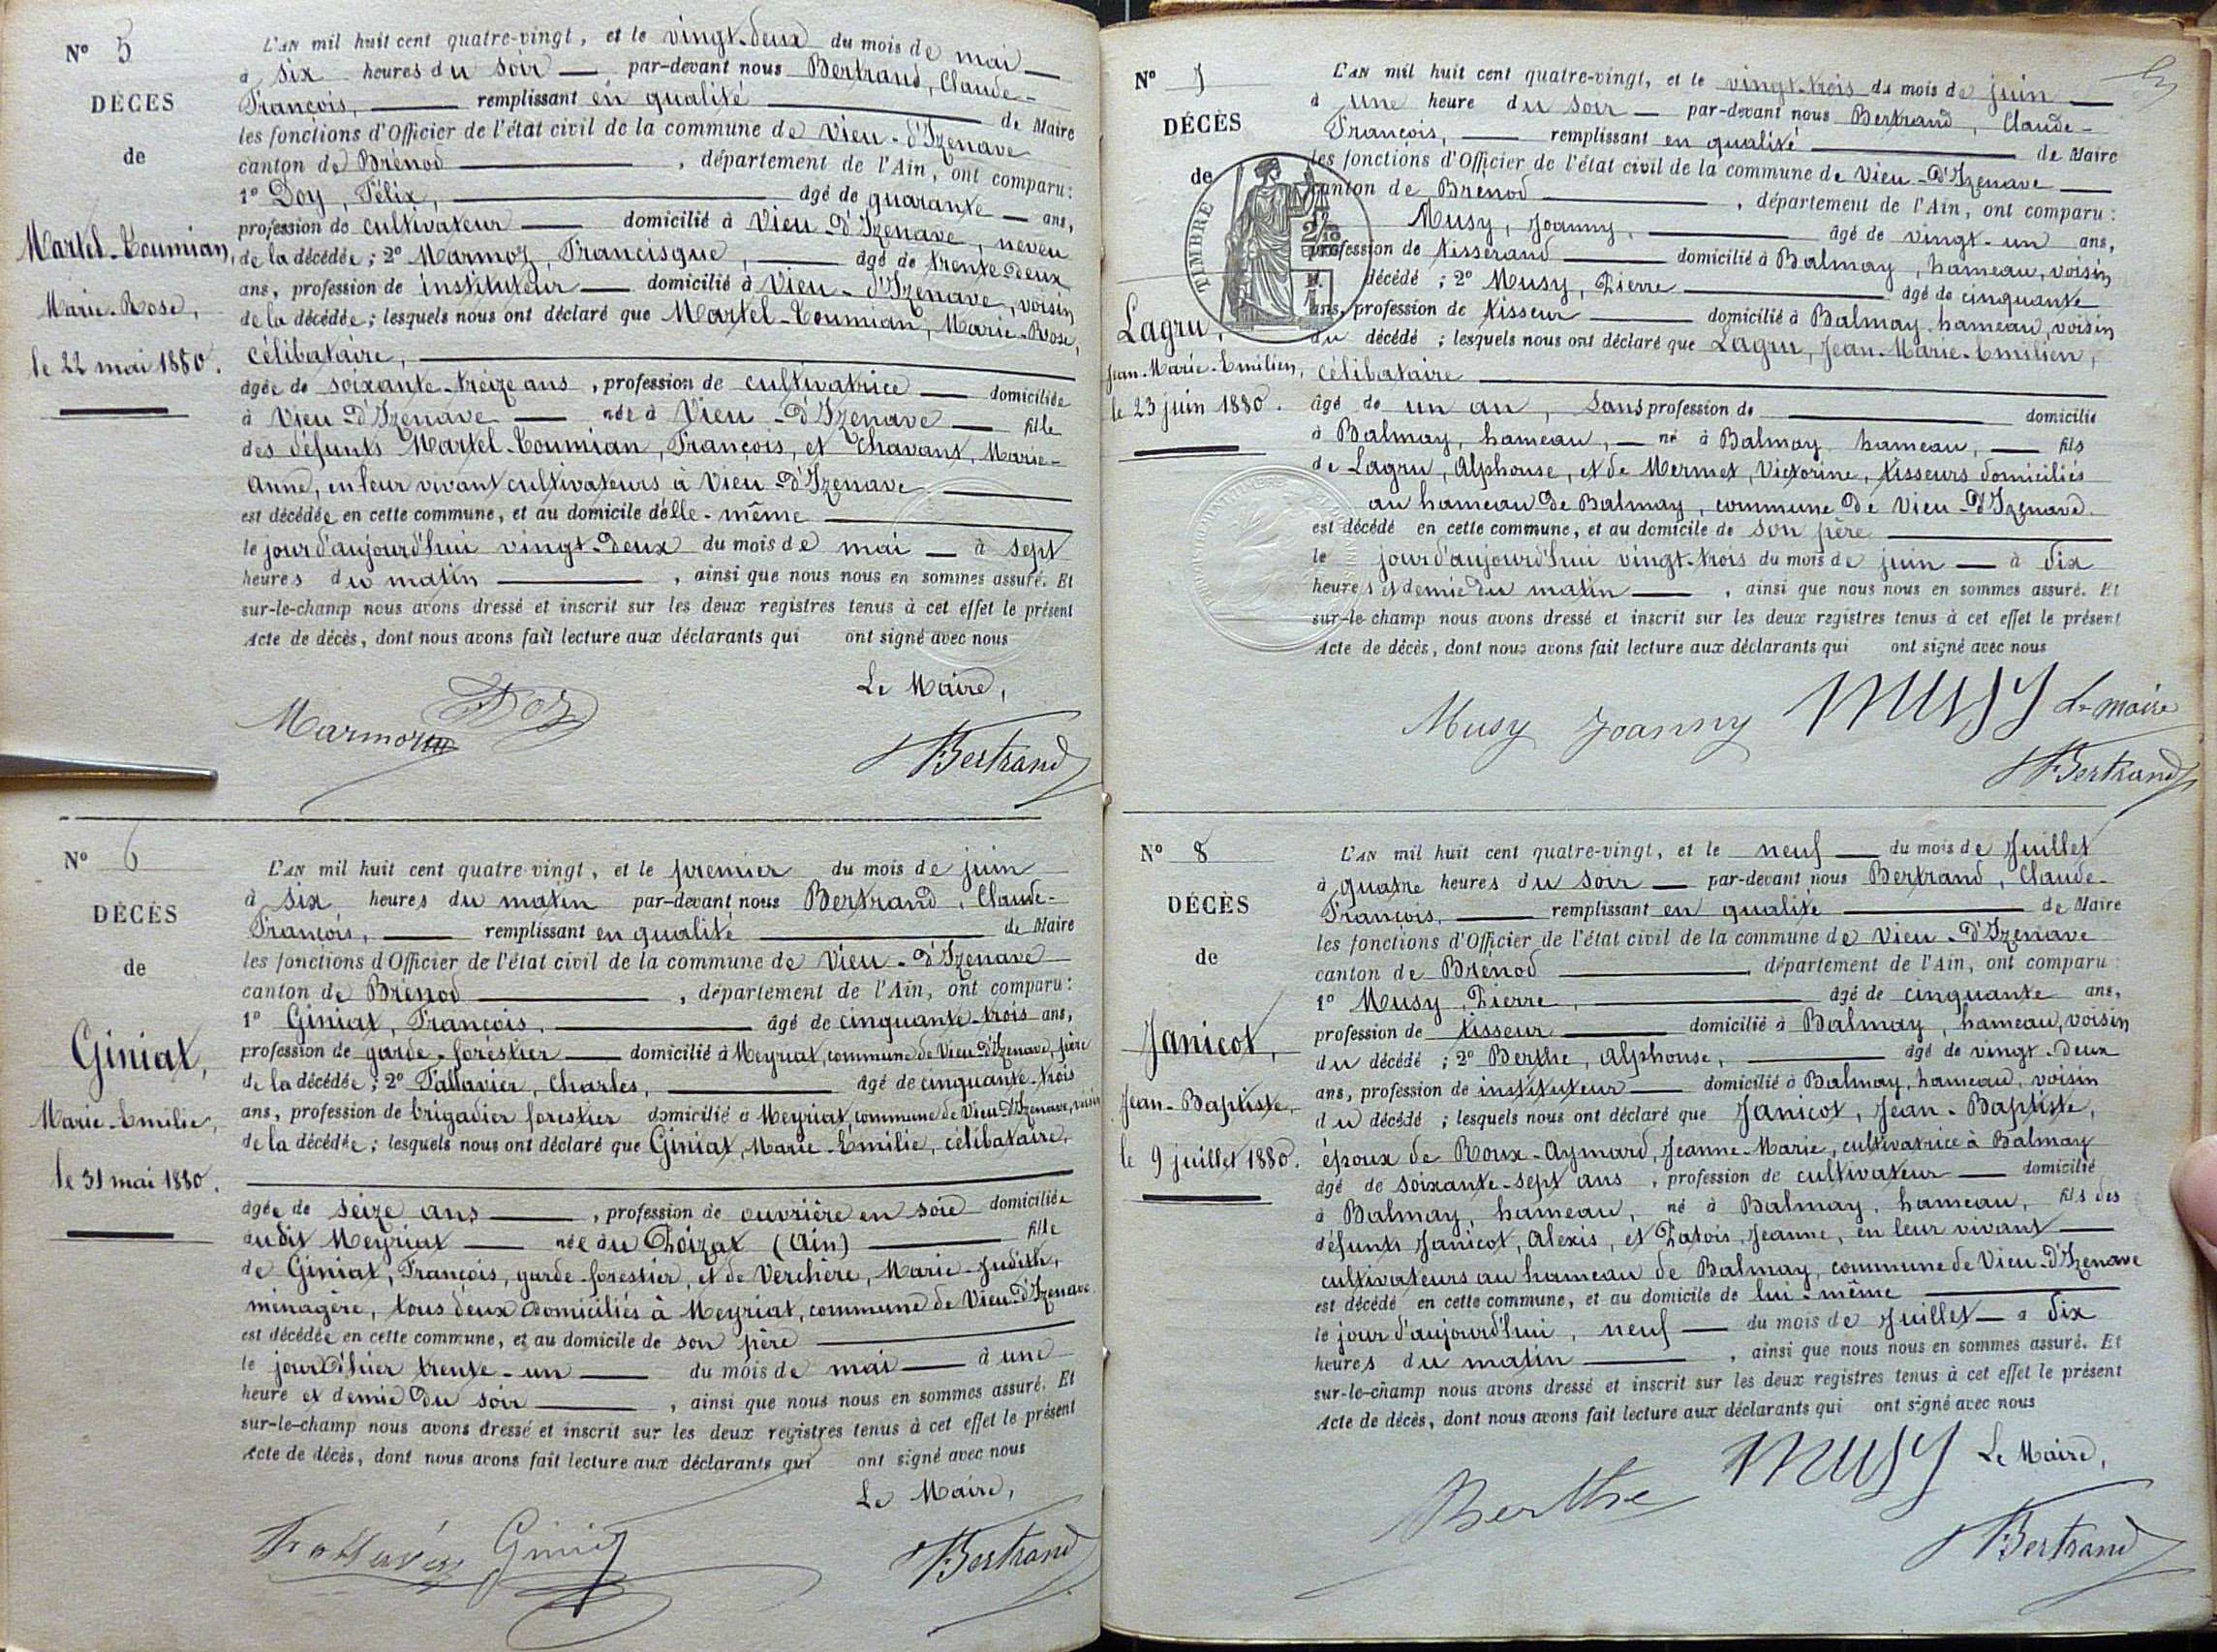 N° 5
DÉCÈS
de
Martel-Toumian,
Marie-Rose,
le 22 mai 1880.
L'AN mil huit cent quatre-vingt, et le vingt-deux du mois de mai
à six heures du soir par-devant nous Bertrand, Claude-
François, remplissant en qualité de Maire
les fonctions d'Officier de l'état civil de la commune de Vieu-d'Izenave
canton de Brénod, département de l'Ain, ont comparu:
1° Doy, Félix, âgé de quarante ans,
profession de cultivateur domicilié à Vieu-d'Izenave, neveu
de la décédée; 2° Marmoz, Francisque, âgé de trente-deux
ans, profession de instituteur domicilié à Vieu-d'Izenave, voisin
de la décédée; lesquels nous ont déclaré que Martel-Toumian, Marie-Rose,
célibataire,
âgée de soixante-treize ans, profession de cultivatrice domiciliée
à Vieu-d'Izenave née à Vieu-d'Izenave fille
des défunts Martel-Toumian, François, et Chavant, Marie-
Anne, en leur vivant cultivateurs à Vieu-d'Izenave
est décédée en cette commune, et au domicile d'elle-même
le jour d'aujourd'hui vingt-deux du mois de mai à sept
heures du matin, ainsi que nous nous en sommes assuré. Et
sur-le-champ nous avons dressé et inscrit sur les deux registres tenus à cet effet le présent
Acte de décès, dont nous avons fait lecture aux déclarants qui ont signé avec nous
Le Maire,
Marmoz Doy
Bertrand
N° 6
DÉCÈS
de
Giniat,
Marie-Emilie,
le 31 mai 1880.
L'AN mil huit cent quatre-vingt, et le premier du mois de juin
à six heures du matin par-devant nous Bertrand, Claude-
François, remplissant en qualité de Maire
les fonctions d'Officier de l'état civil de la commune de Vieu-d'Izenave
canton de Brénod, département de l'Ain, ont comparu:
1° Giniat, François, âgé de cinquante-trois ans,
profession de garde-forestier domicilié à Meyriat, commune de Vieu-d'Izenave, père
de la décédée; 2° Tattavier, Charles, âgé de cinquante-trois
ans, profession de brigadier forestier domicilié à Meyriat, commune de Vieu-d'Izenave, voisin
de la décédée; lesquels nous ont déclaré que Giniat, Marie-Emilie, célibataire,
âgée de seize ans, profession de ouvrière en soie domiciliée
audit Meyriat née au Poizat (Ain) fille
de Giniat, François, garde-forestier, et de Verchère, Marie-Judith,
ménagère, tous deux domiciliés à Meyriat, commune de Vieu-d'Izenave.
est décédée en cette commune, et au domicile de son père
le jour d'hier trente-un du mois de mai à une
heure et demie du soir, ainsi que nous nous en sommes assuré. Et
sur-le-champ nous avons dressé et inscrit sur les deux registres tenus à cet effet le présent
Acte de décès, dont nous avons fait lecture aux déclarants qui ont signé avec nous
Le Maire,
Giniat
Bertrand
N° 7
DÉCÈS
de
TIMBRE
Lagru,
Jean-Marie-Emilien,
le 23 juin 1880.
L'AN mil huit cent quatre-vingt, et le vingt-trois du mois de juin
à une heure du soir par-devant nous Bertrand, Claude-
François, remplissant en qualité de Maire
les fonctions d'Officier de l'état civil de la commune de Vieu-d'Izenave
canton de Brénod, département de l'Ain, ont comparu:
Musy, Joanny, âgé de vingt-un ans,
profession de tisserand domicilié à Balmay, hameau, voisin
décédé; 2° Musy, Pierre âgé de cinquante
ans, profession de tisseur domicilié à Balmay, hameau, voisin
du décédé; lesquels nous ont déclaré que Lagru, Jean-Marie-Emilien,
célibataire
âgé de un an, sans profession de domicilié
à Balmay, hameau, né à Balmay, hameau, fils
de Lagru, Alphonse, et de Mermet, Victorine, tisseurs domiciliés
au hameau de Balmay, commune de Vieu-d'Izenave.
est décédé en cette commune, et au domicile de son père
le jour d'aujourd'hui vingt-trois du mois de juin à dix
heures et demie du matin, ainsi que nous nous en sommes assuré. Et
sur-le-champ nous avons dressé et inscrit sur les deux registres tenus à cet effet le présent
Acte de décès, dont nous avons fait lecture aux déclarants qui ont signé avec nous
Musy Joanny Musy Le maire
Bertrand
N° 8
DÉCÈS
de
Janicot,
Jean-Baptiste,
le 9 juillet 1880.
L'AN mil huit cent quatre-vingt, et le neuf du mois de Juillet
à quatre heures du soir par-devant nous Bertrand, Claude-
François, remplissant en qualité de Maire
les fonctions d'Officier de l'état civil de la commune de Vieu-d'Izenave
canton de Brénod, département de l'Ain, ont comparu:
1° Musy, Pierre, âgé de cinquante ans,
profession de tisseur domicilié à Balmay, hameau, voisin
du décédé; 2° Berthe, Alphonse, âgé de vingt-deux
ans, profession de instituteur domicilié à Balmay, hameau, voisin
du décédé; lesquels nous ont déclaré que Janicot, Jean-Baptiste,
époux de Roux-Aymard, Jeanne-Marie, cultivatrice à Balmay
âgé de soixante-sept ans, profession de cultivateur domicilié
à Balmay, hameau, né à Balmay, hameau, fils des
défunts Janicot, Alexis, et Patois, Jeanne, en leur vivant
cultivateurs au hameau de Balmay, commune de Vieu-d'Izenave
est décédé en cette commune, et au domicile de lui-même
le jour d'aujourd'hui, neuf du mois de Juillet à dix
heures du matin, ainsi que nous nous en sommes assuré. Et
sur-le-champ nous avons dressé et inscrit sur les deux registres tenus à cet effet le présent
Acte de décès, dont nous avons fait lecture aux déclarants qui ont signé avec nous
Berthe Musy Le Maire,
Bertrand